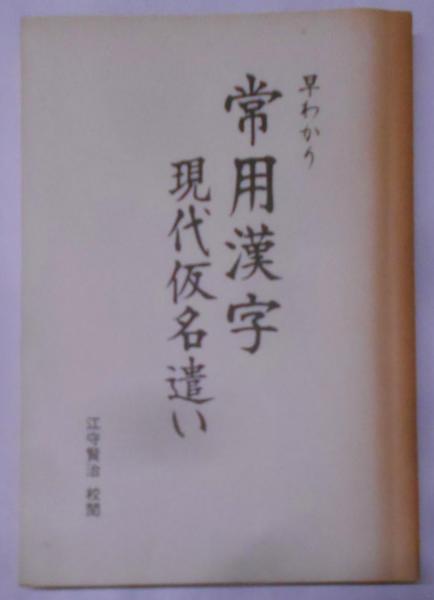 早わかり
常用漢字
現代仮名遣い
江守賢治 校閲